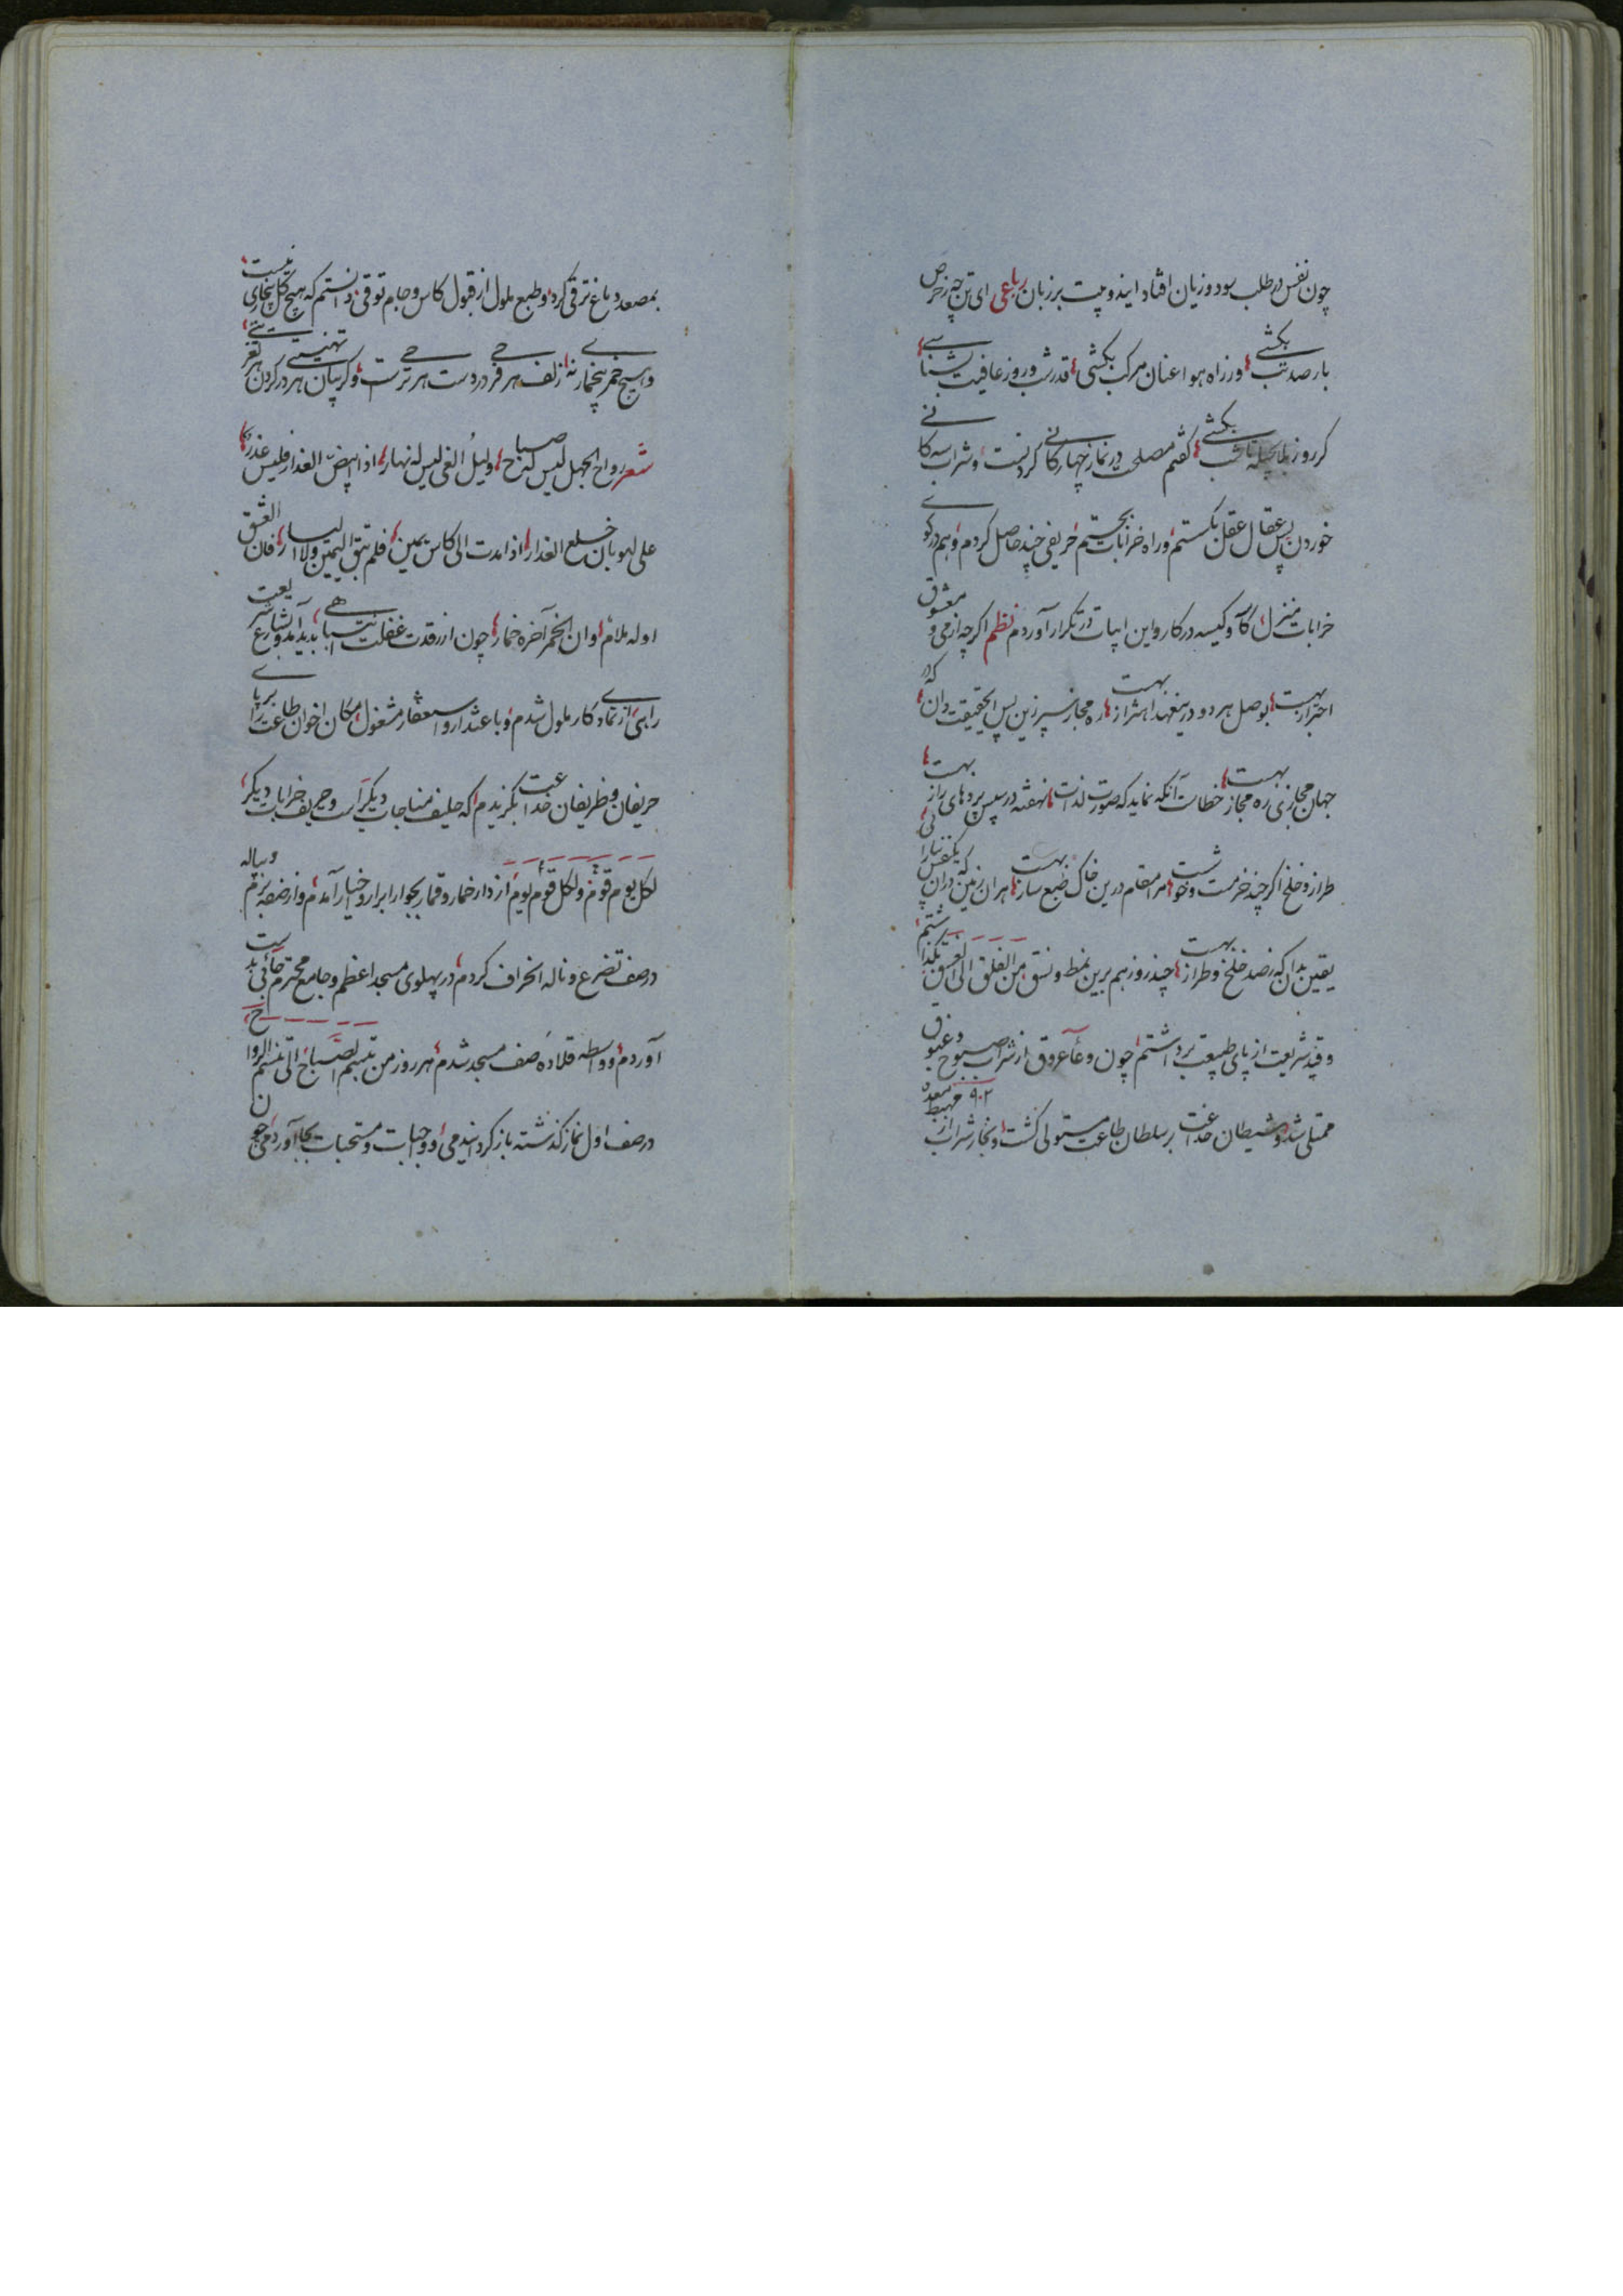 چون نفس در طلب سود و زیان افتاد این دو بیت بر زبان رباعی ای تن چه ز حرص
بار صد تب بکشی ورزاه هوا عنان مرکب بکشی قدر شب و روز عافیت بشناسی
کر روز بلا بحیله تا شب بکشی کفتم مصلحی در نماز چهار کانی کردنست و شراب سه کانی
خوردن پس عقال عقل بکستم و راه خرابات بجستم حریفی چند حاصل کردم و هم در کوی
خرابات منزل کاسه و کیسه در کار و این ابیات در تکرار آوردم نظم اکرچه از می و معشوق
احتراز بهست بوصل هر دو درینعهد اهتزاز بهست ره مجاز سپر زین پس ای حقیقت دان که در
جهان مجازی ره مجاز بهست خطاست آنکه نماید که صورت لذات نهفته در پس پردهای راز بهست
طراز و خلخ اکر چند خرمست و خوش مرا مقام درین خاک ضبع ساز بهست هران زمین که دران یکنفس بیارامی
یقین بدان که ز صد خلخ و طراز بهست چند روز هم برین نمط و نسق من الفلق الی الغسق بکذاشتم
و قید شریعت از پای طبیعت برداشتم چون وعاء عروق از شراب صبوح و غبوق
ممتلی شد و شیطان خداعت بر سلطان طاعت مستولی کشت و بخار شراب از مهبط معده
۹۰۲
بمصعد دماغ ترقی کرد و طبع ملول از قبول کاس و جام توقی دانستم که هیچ کل بیخاری نیست
و هیچ خمر بیخمار نه زلف هر فرحی در دست هر ترحیست و کریبان هر تهنیتی در کردن هر تعزیتی
شعر رواح الجهل لیس لنح صباح ولیل الغی لیس له نهار اذا ابیض العذار فلیس عذر
علی لهو بان خلع العذار اذا مدت الی کاس یمین فلم تبق الیمین ولا الیسار فان العشق
اوله ملام وان الخمر آخره خمار چون از رقدت غفلت انتباهی پدید آمد و آثار شریعت
را بی از تمادی کار ملول شدم و باعتذار و استغفار مشغول مکان اخوان طاعت را بر پای
حریفان و ظریفان خداعت بکزیدم که حلیف مناجات دیکر است و حریف خرابات دیکر
لکل یوم قوم ولکل قوم یوم از دار خمار و قمار بجوار ابرار و اخیار آمدم و از صف بزم و پیاله
در صف تضرع و ناله انحراف کردم در پهلوی مسجد اعظم و جامع محترم جائی بدست
آوردم و واسطه قلاده صف مسجد شدم هر روز من تبسم الصباح الی تنسم الرواح
در صف اول نماز کذشته باز کردانیدمی و واجبات و مستحبات بجا آوردمی چون